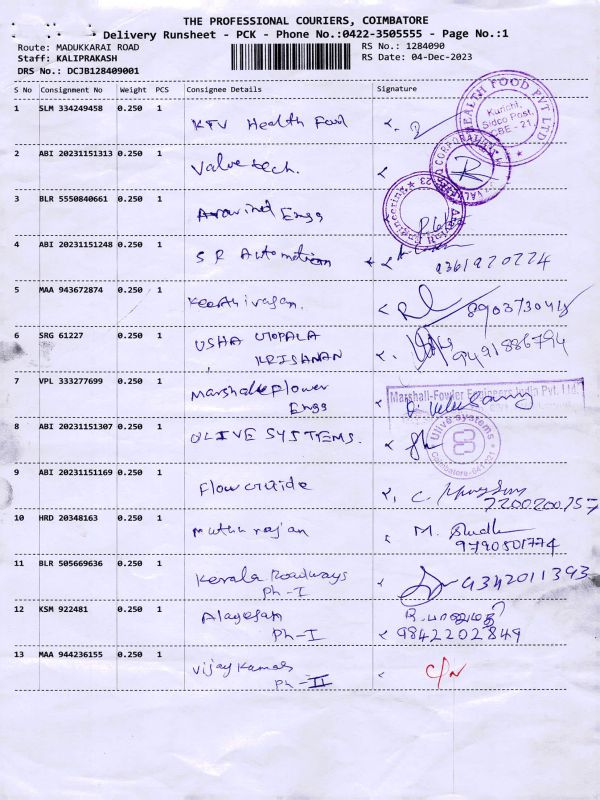 THE PROFESSIONAL COURIERS, COIMBATORE
Delivery Runsheet - PCK - Phone No.:0422-3505555 - Page No.:1
Route: MADUKKARAI ROAD
RS No.: 1284090
Staff: KALIPRAKASH
RS Date: 04-Dec-2023
DRS No.: DCJB128409001
S No Consignment No Weight PCS Consignee Details Signature
1 SLM 334249458 0.250 1 KTV Health Food
HEALTH FOOD PVT LTD
Kurichi,
Sidco Post,
CBE - 21.
2 ABI 20231151313 0.250 1 Valuetech.
3 BLR 5550840661 0.250 1 Aravind Engg
4 ABI 20231151248 0.250 1 S R Automation
9361920224
5 MAA 943672874 0.250 1 Keerthivasan.
8903730418
6 SRG 61227 0.250 1 USHA UTOPALA
KRISHNAN 9491886794
7 VPL 333277699 0.250 1 Marshall Flower
Engg
Marshall-Fowler Engineers India Pvt. Ltd.
8 ABI 20231151307 0.250 1 OLIVE SYSTTEMS.
Olive Systems
Coimbatore-641 021
9 ABI 20231151169 0.250 1 Flowcruide
C.
7200200757
10 HRD 20348163 0.250 1 Muthu rajan M.
9790501774
11 BLR 505669636 0.250 1 Kerala Roadways
Ph-I 9342011393
12 KSM 922481 0.250 1 Alagesan
Ph-I 9842202849
13 MAA 944236155 0.250 1 Vijay Kamals C/N
Ph-II